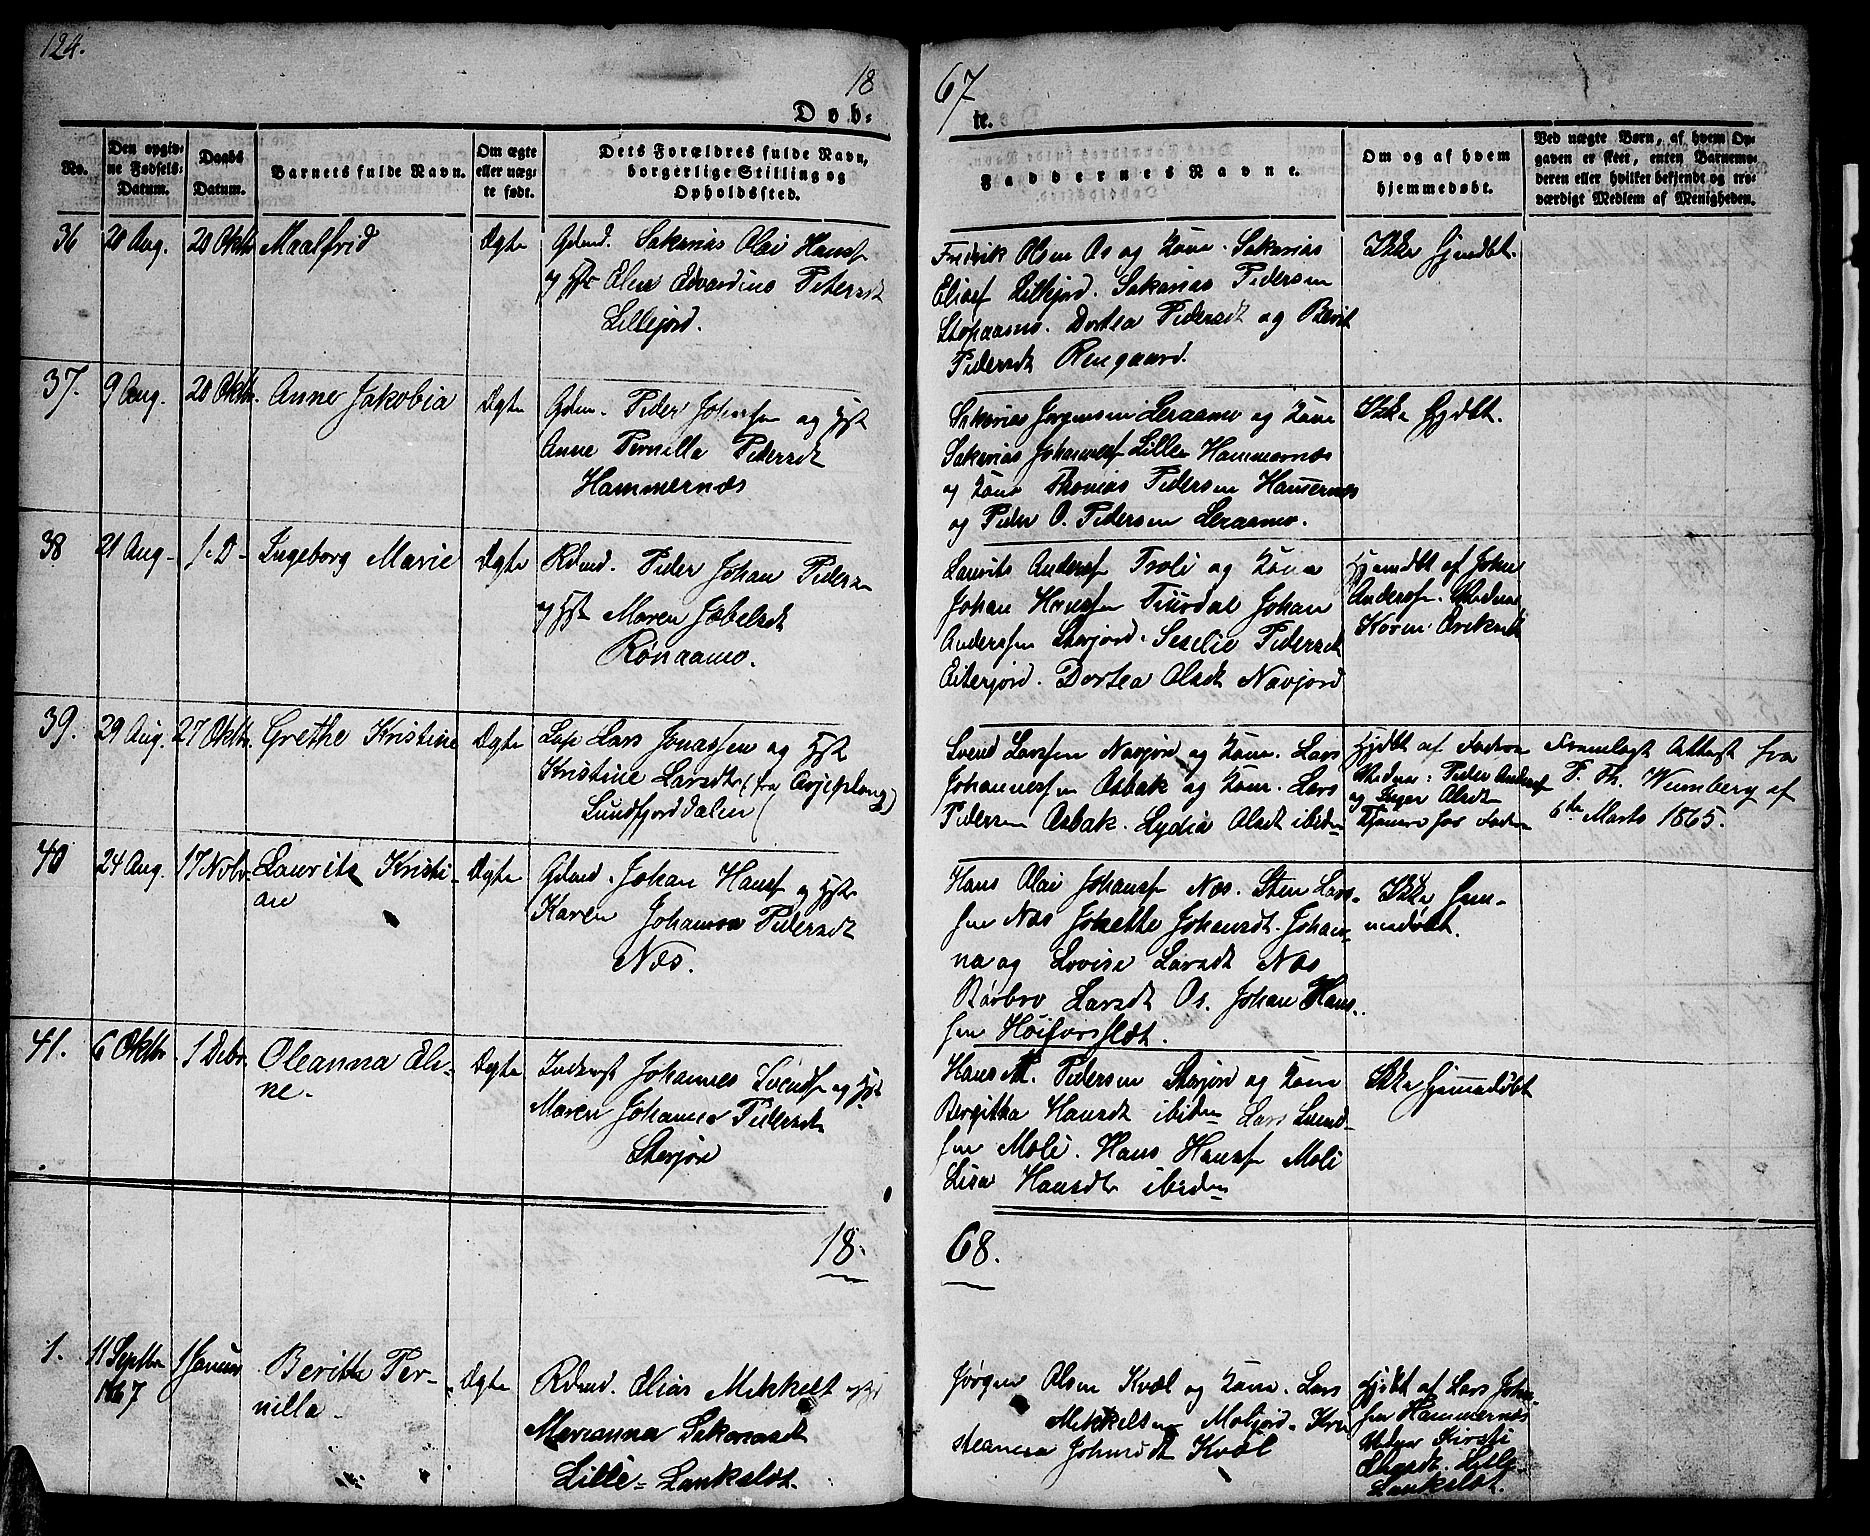 124.
18
67
Døb-
te.
No.
Den opgiv-
ne Fødsels-
Datum.
Daabs
Datum.
Barnets fulde Navn.
Om ægte
eller uæg-
te født.
Dets Forældres fulde Navn,
borgerlige Stilling og
Opholdssted.
Faddernes Navne.
Om og af hvem
hjemmedøbt.
Ved uægte Børn, af hvem Op-
gaven er skeet, enten Barnemo-
deren eller hvilket bekjendt og tro-
værdigt Medlem af Menigheden.
36 20 Aug. 20 Oktb Maalfrid Ægte
Gdmd. Sakarias Olai Hansf
og Hst Elen Edvardine Petersdt
Lillejord.
Fredrik Olsen Os og Kone. Sakarias
Eliasf Lillejord. Sakarias Pedersen
Storaamo. Dortea Pedersdt og Berit
Pedersdt Rengaard.
Ikke hjmdbt.
37. 9 Aug. 20 Oktb. Anne Jakobia Ægte
Gdm. Peder Johnsen og Hst
Anne Pernilla Pedersdt
Hammernæs
Sakarias Jørgensen Leraamo og Kone
Sakarias Johannesf Lille Hammernæs
og Kone Thomas Pedersen Hamernæs
og Peder O. Pedersen Leraamo.
Ikke Hjdbt.
38 21 Aug- 1. D- Ingeborg Marie Ægte
Rdmd. Peder Johan Pedersen
og Hst Maren Jæbelsdt
Rønaamo.
Laurits Andersf Troli og Kone
Johan Hansen Tverdal Johan
Andersen Storjord. Seselie Pedersdt
Eiterjord. Dortea Olsdt Navjord
Hjemdbt af Johan
Andersen.
Karen Eriksdt
39. 29 Aug. 27 Oktb. Grethe Kristine Ægte
Lap Lars Jonassen og Hst
Kristine Larsdt (fra Arjeplong)
Lundfjorddalen
Svend Larssen Navjord og Kone. Lars
Johannessen Asbak og Kone. Lars
Pedersen Asbak. Lydia Olsdt ibiden
Hjdbt af
Vidner: Peder Andersf
og Inger Olsdt
Fremlagt Attest fra
P. Th. Wurnberg af
6te Marts 1865.
40 24 Aug. 17 Novbr. Laurits Kristi-
an
Ægte
Gdmd. Johan Hansf og Hst
Karen Johanna Pedersdt
Næs.
Hans Olai Johansf Næs. Sten Lars-
sen Næs Johette Johansdt. Johan-
na og Lovise Larsdt Næs
Barbro Larsdt Os. Johan Han-
sen Høiforsslet.
Ikke hjem-
medøbt.
41. 6 Oktbr. 1 Debr. Oleanna Eli-
ne.
Ægte
Inderst Johannes Svendsf og Hst
Maren Johanna Pedersdt
Storjord
Hans M. Pedersen Storjord og Kone
Bergitha Hansdt ibiden Lars Svend-
sen Moli. Hans Hansf Moli
Lisa Hansdt ibiden
Ikke Hjemmedøbt
18.
68.
1. 11 Septbr 1 Januar
1867
Beritha Per-
nilla.
Ægte
Rdmd. Elias Mikkelsf og Hst
Marianna Sakariasdt
Lille-Lanksløt.
Jørgen Olsen Kvæl og Kone. Lars
Mikkelsen Moljord. Kri-
steanna Johnsdt Kvæl
Hjdbt af Lars John-
sen Hammernæs
Vidner Kirsti
Lille-
Lanksløt.